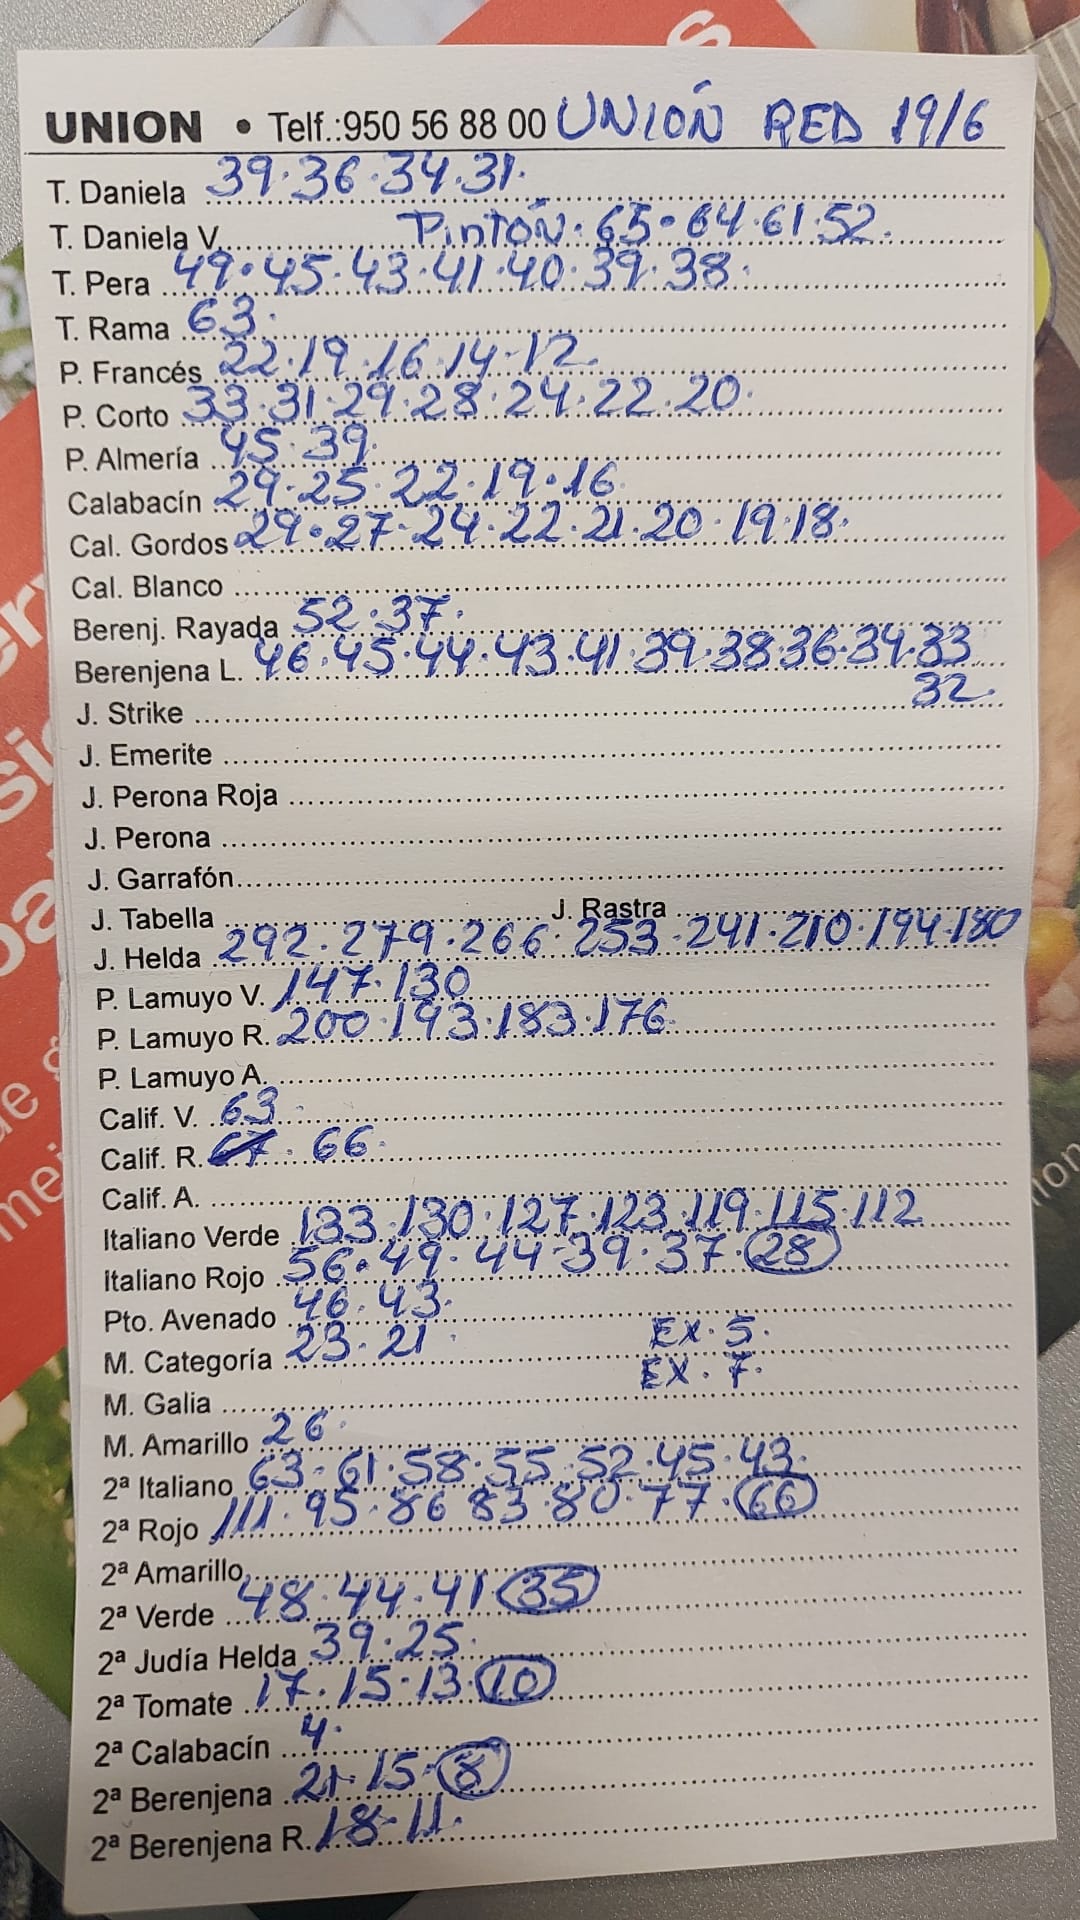 UNION • Telf.:950 56 88 00 UNIÓN RED 19/6
T. Daniela 39·36·34·31·
T. Daniela V. PINTÓN·65·64·61·52.
T. Pera 49·45·43·41·40·39·38·
T. Rama 63·
P. Francés 22·19·16·14·12.
P. Corto 33·31·29·28·24·22·20·
P. Almería 45·39
Calabacín 29·25·22·19·16
Cal. Gordos 29·27·24·22·21·20·19·18·
Cal. Blanco
Berenj. Rayada 52·37·
Berenjena L. 46·45·44·43·41·39·38·36·34·33
32·
J. Strike
J. Emerite
J. Perona Roja
J. Perona
J. Garrafón
J. Tabella J. Rastra
J. Helda 292·279·266·253·241·210·194·180
P. Lamuyo V. 147·130
P. Lamuyo R. 200·193·183·176
P. Lamuyo A.
Calif. V. 63
Calif. R. 67·66·
Calif. A.
Italiano Verde 133·130·127·123·119·115·112
Italiano Rojo 56·49·44·39·37·28
Pto. Avenado 46·43·
M. Categoría 23·21· EX·5·
EX·7·
M. Galia
M. Amarillo 26·
2ª Italiano 63·61·58·55·52·45·43·
2ª Rojo 111·95·86 83·80·77·66
2ª Amarillo
2ª Verde 48·44·41 35
2ª Judía Helda 39·25
2ª Tomate 17·15·13·10
2ª Calabacín 4·
2ª Berenjena 21·15·8
2ª Berenjena R. 18·11·